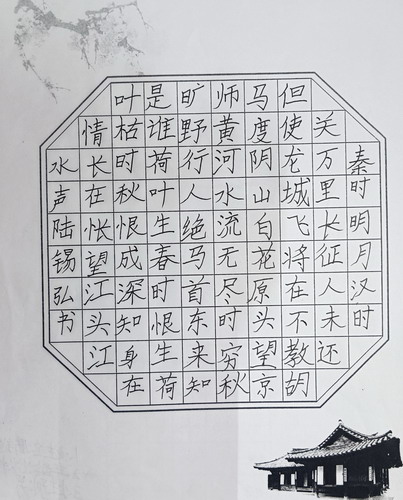 秦时明月汉时
关万里长征人未还
但使龙城飞将在不教胡
马度阴山白花原头望京
师黄河水流无尽时穷秋
旷野行人绝马首东来知
是谁荷叶生春时恨生荷
叶枯时秋恨成深知身在
情长在怅望江头江
水声陆锡弘书